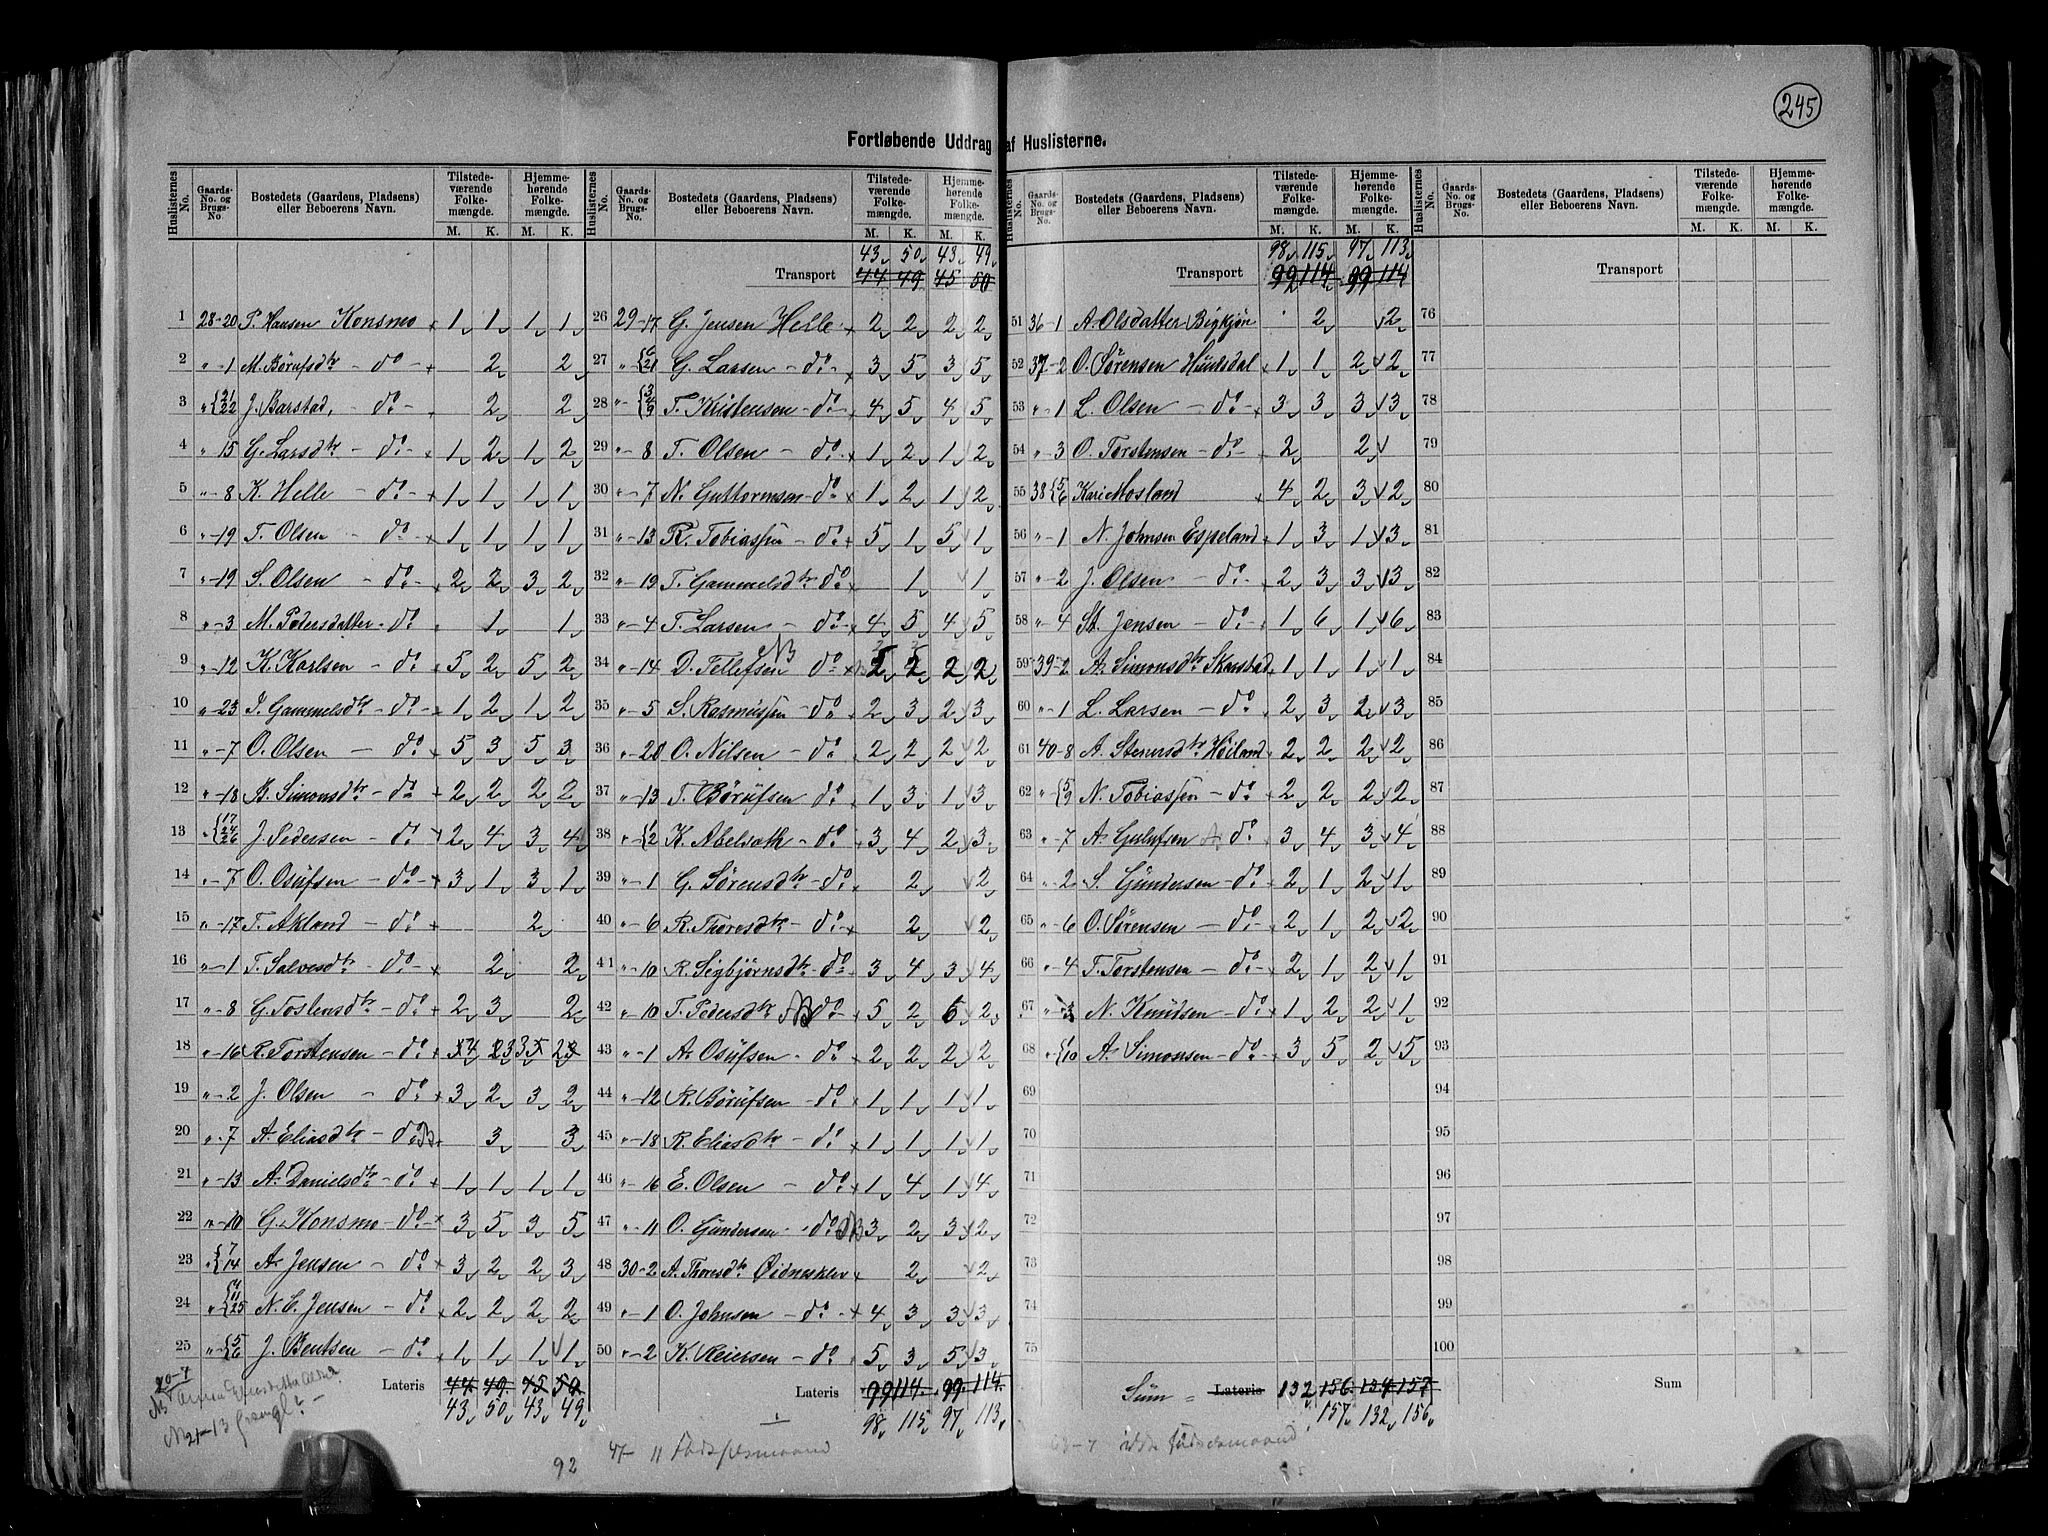 245
Fortløbende Uddrag af Huslisterne.
Huslisternes No. Gaards-No. og Brugs-No. Bostedets (Gaardens, Pladsens) eller Beboerens Navn. Tilstedeværende Folkemængde. Hjemmehørende Folkemængde. M. K. M. K.
1 28-20 P. Hansen Konsmo 1 1 1 1
2 " -1 M. Börufsdtr - do - 2 2
3 " {21 22 J. Barstad, - do - 2 2
4 " 15 G. Larsdtr - do - 1 2 1 2
5 " -8 K. Helle - do - 1 1 1 1
6 " -19 T. Olsen - do - 1 1 1 1
7 " -19 S. Olsen - do - 2 2 3 2
8 " -3 M. Pedersdatter - do 1 1
9 " -12 K. Karlsen - do 5 2 5 2
10 " -23 J. Gammelsdtr - do - 1 2 1 2
11 " -7 O. Olsen - do 5 3 5 3
12 " -18 B. Simonsdtr - do 2 2 2 2
13 " {17 24 26 J. Pedersen - do 2 4 3 4
14 " -7 O. Osufsen - do - 3 1 3 1
15 " -17 T. Akland - do 2
16 " -1 T. Salvesdtr - do - 2 2
17 " -8 G. Toslensdtr - do 2 3 2
18 " -16 R. Torstensen - do
19 " -2 J. Olsen - do 3 2 3 2
20 " -7 A. Eliasdtr - do 3 3
21 " -13 A. Danielsdtr - do 1 1 1 1
22 " -10 G. Konsmo - do - 3 5 3 5
23 " {7 14 A. Jensen - do 3 2 2 3
24 " {11 25 N. C. Jensen - do 2 2 2 2
25 " {5 6 J. Bentsen - do 1 1 1 1
Lateris 44 49 45 50
43 50 43 49
20-7
92
43 50 43 49
Transport 44 49 45 50
26 29-17 G. Jensen Helle 2 2 2 2
27 " {6 21 G. Larsen - do - 3 5 3 5
28 " {3 9 T. Kristensen - do 4 5 4 5
29 " -8 T. Olsen - do 1 2 1 2
30 " -7 N. Guttormsen - do 1 2 1 2
31 " -13 R. Tobiassen - do 5 1 5 1
32 " -19 T. Gammelsdtr do 1 1
33 " -4 T. Larsen - do - 4 5 4 5
34 " -14 D. Tellefsen NB do 2 2 2 2
35 " -5 S. Rasmussen - do 2 3 2 3
36 " -20 O. Nilsen - do 2 2 2 2
37 " -13 T. Börufsen do 1 3 1 3
38 " {1 2 K. Abelseth - do 3 4 2 3
39 " -1 G. Sörensdtr - do 2 2
40 " -6 R. Thoresdtr - do 2 2
41 " -10 R. Sigbjörnsdtr - do 3 4 3 4
42 " -10 T. Pedersdtr NB do 5 2 6 2
43 " -1 A. Osufsen - do 2 2 2 2
44 " -12 R. Börufsen - do 1 1 1 1
45 " -18 R. Eliasdtr - do 1 1 1 1
46 " -16 E. Olsen - do 1 4 1 4
47 " -11 O. Gundersen - do NB 3 2 3 2
48 30-2 A. Thoresdtr Öidneskler 2 2
49 " -1 O. Johnsen - do - 4 3 3 3
50 " -2 K. Reiersen - do 5 3 5 3
Lateris 99 114 99 114
98 115 97 113
47-11
98 115 97 113
Transport 99 114 99 114
51 36-1 A. Olsdatter Bigkjön 2 2
52 37-2 O. Sörensen Hundsdal 1 1 2 2
53 " -1 L. Olsen - do 3 3 3 3
54 " -3 O. Torstensen - do 2 2
55 38 {5 6 Kari Mosland 4 2 3 2
56 " -1 N. Johnsen Espeland 1 3 1 3
57 " -2 J. Olsen - do 2 3 3 3
58 " -4 St. Jensen - do 1 6 1 6
59 39-2 A. Simonsdtr Skarstad 1 1 1 1
60 " -1 L. Larsen - do 2 3 2 3
61 40-8 A. Stenersdtr Höiland 2 2 2 2
62 " {5 9 N. Tobiassen - do 2 2 2 2
63 " -7 A. Gulufsen do 3 4 3 4
64 " -2 S. Gundersen - do 2 1 2 1
65 " -6 O. Sörensen - do 2 1 2 2
66 " -4 T. Torstensen - do 2 1 2 1
67 " -3 N. Knudsen - do 1 2 2 1
68 " {1 10 A. Simonsen - do - 3 5 2 5
69
70
71
72
73
74
75
Sum Lateris 132 156 134 157
157 132 156
Transport
76
77
78
79
80
81
82
83
84
85
86
87
88
89
90
91
92
93
94
95
96
97
98
99
100
Sum